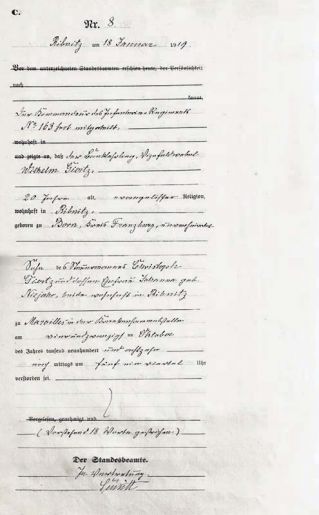 C.
Nr. 8
Ribnitz am 18 Januar 1919.
Vor dem unterzeichneten Standesbeamten erschien heute, der Persönlichkeit
nach
kannt,
Der Kommandeur des Infanterie-Regiments
No 163 hat mitgeteilt.
wohnhaft in
und zeigte an, daß der Banklehrling, Vizefeldwebel
Wilhelm
20 Jahre alt, evangelischer Religion,
wohnhaft in Ribnitz,
geboren zu Born, Kreis Franzburg, unverheiratet
Sohn des Steuermannes Christoph
und dessen Ehefrau Johanna geb.
beide wohnhaft in Ribnitz
zu in der Krankensammelstelle
am vierundzwanzigsten Oktober
des Jahres tausend neunhundert und achtzehn
nach mittags um fünf ein viertel Uhr
verstorben sei.
Vorgelesen, genehmigt und
(Vorstehend 18 Worte gestrichen.)
Der Standesbeamte.
In Vertretung